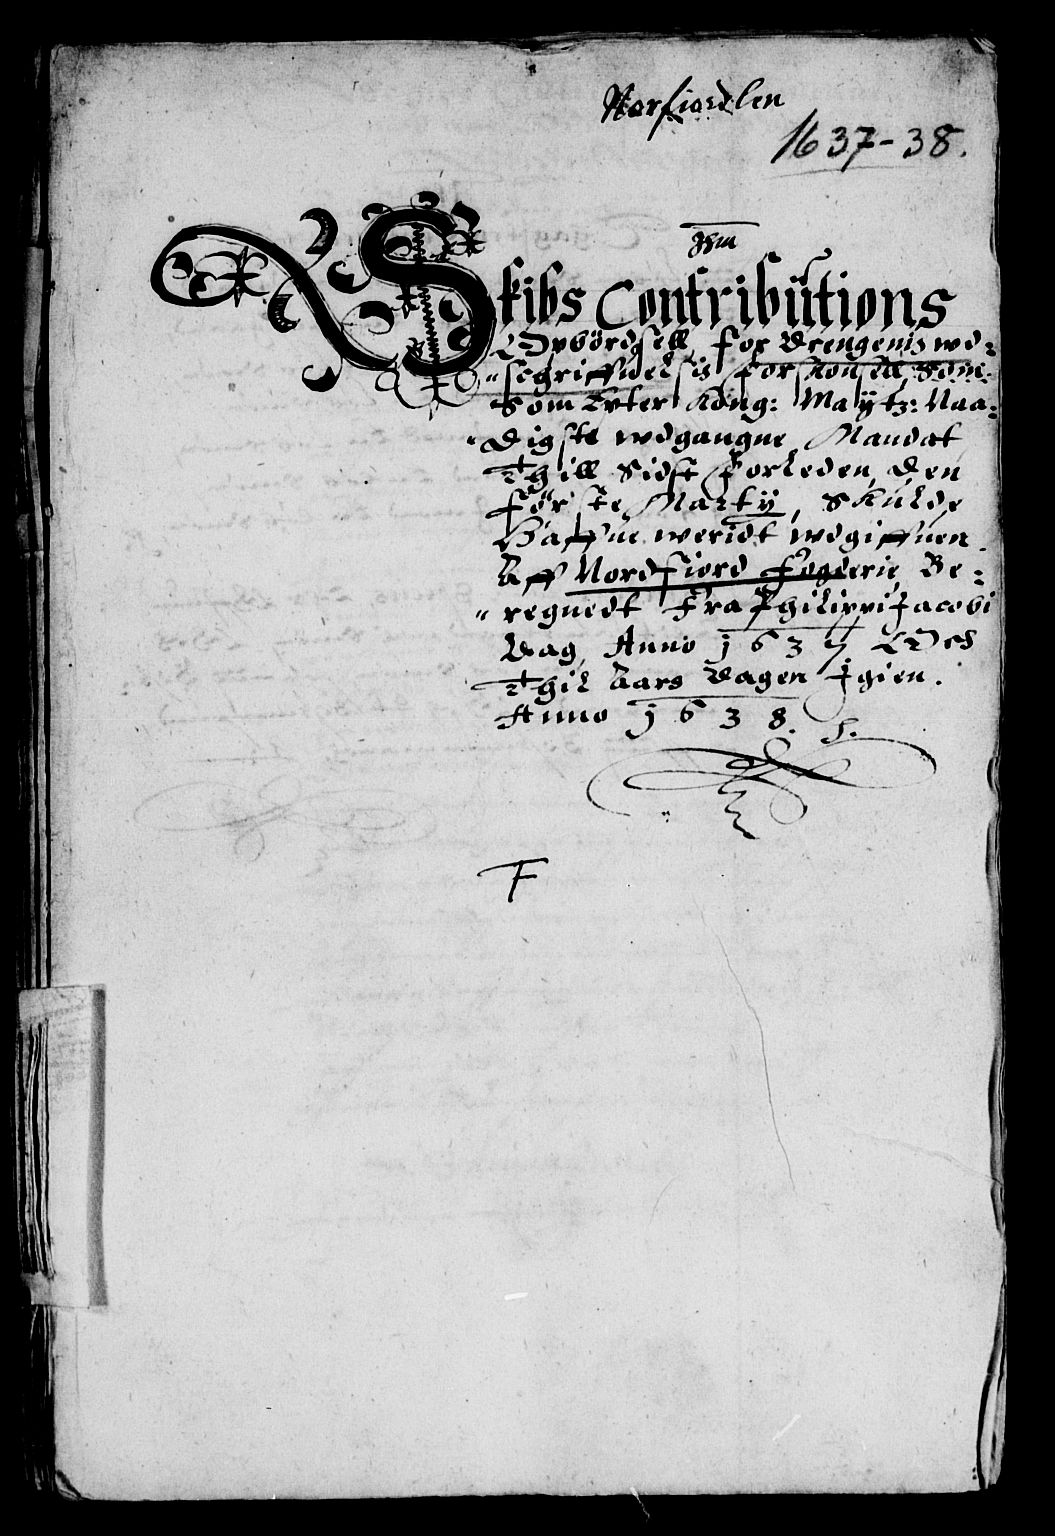 Norfiordlen
1637-38.
Skibs Contributions
Opbördsell, for drengenis wd=
schriffuelsis forskonsell, Som
Som Epter Kong: Maÿtz: Naa=
digste wdgangne Mandat
Thill Sidst forleden, den
förste Martÿ, Skulde
Haffue weridt wdgiffuen
Aff Nordfiord fogderie, Be=
regnedt Fra Philippi Jacobi
Dag, Anno 1637 Och
Thil Aars dagen Igien.
Anno 1638.
F